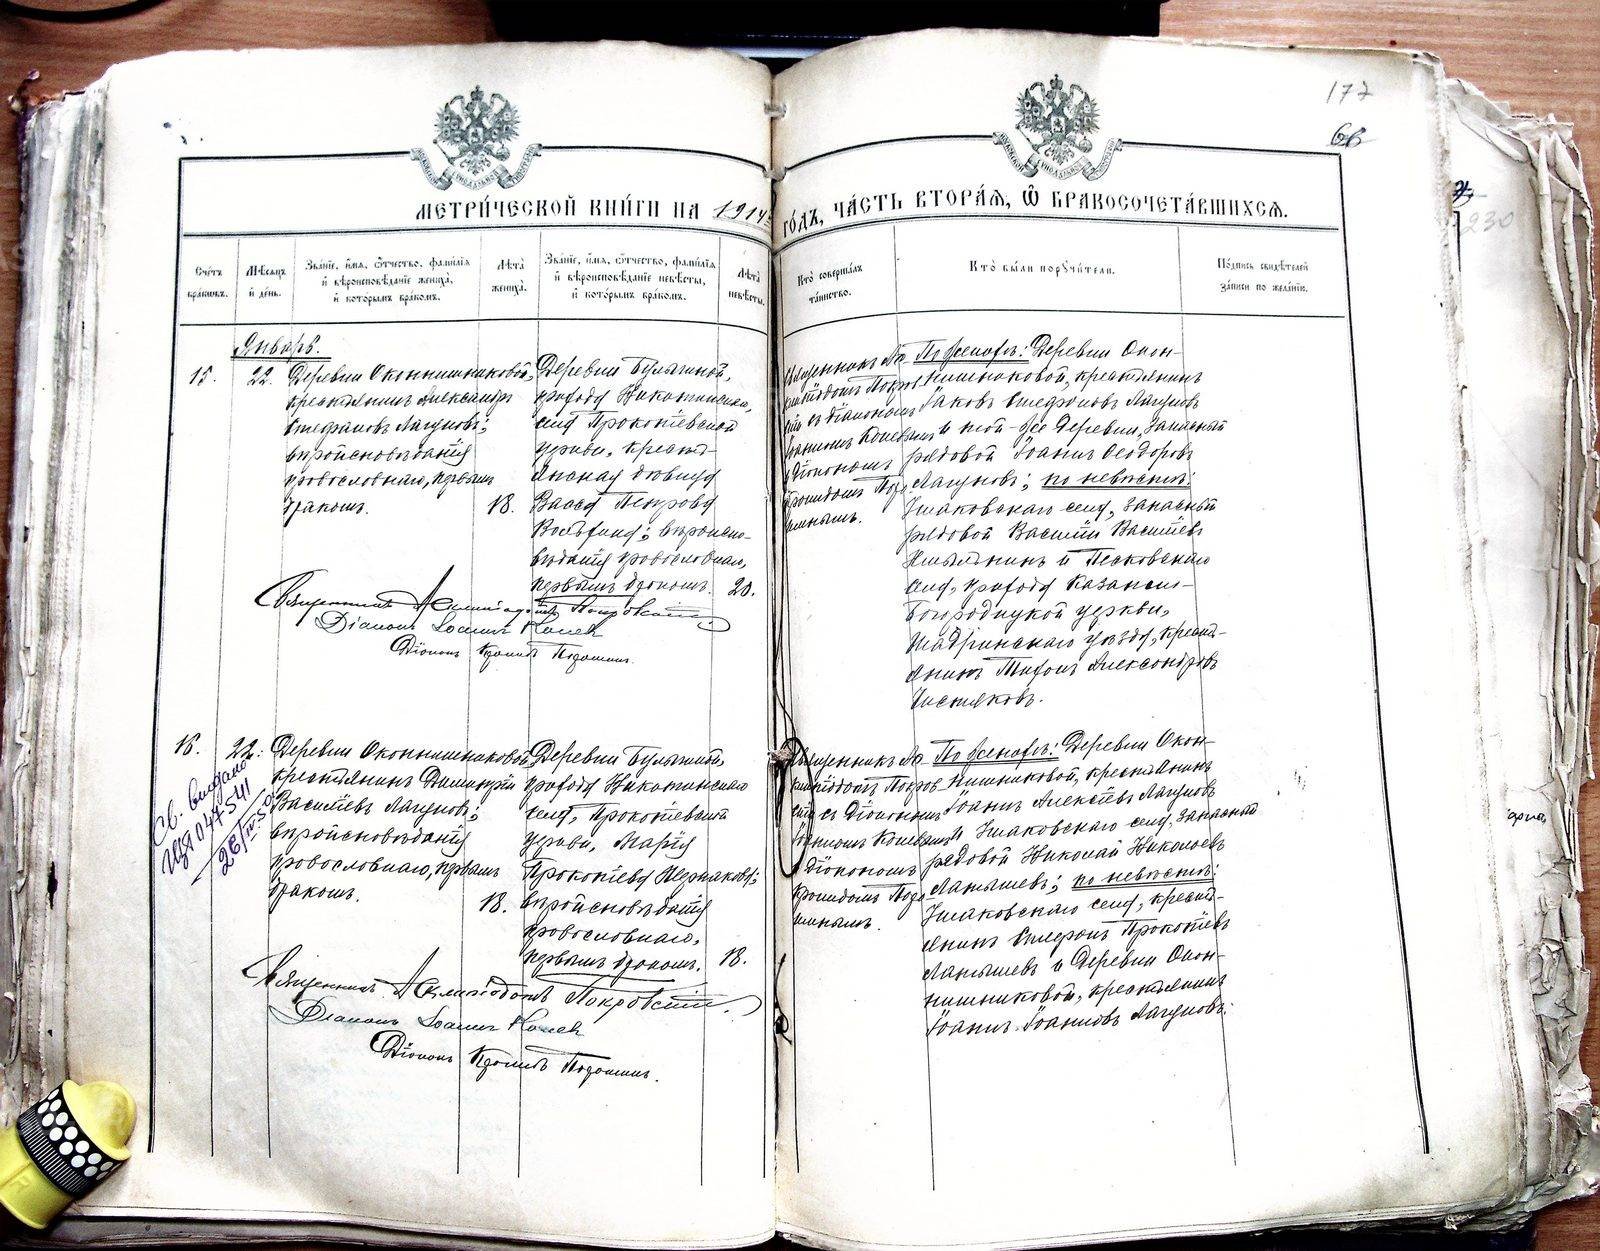 177
66
МЕТРИ́ЧЕСКОЙ КНИ́ГИ НА 1914й ГО́ДЪ, ЧА́СТЬ ВТОРА́Я, Ѽ БРАКОСОЧЕТА́ВШИХСЯ.
Сче́тъ бра́ковъ.
Мѣ́сяцъ и де́нь.
Зва́нїе, и́мя, ѻ́тчество, фами́лїя и вѣроисповѣ́данїе жениха̀, и кото́рымъ бра́комъ.
Лѣ́та жениха̀.
Зва́нїе, и́мя, ѻ́тчество, фами́лїя и вѣроисповѣ́данїе невѣ́сты, и кото́рымъ бра́комъ.
Лѣ́та невѣ́сты.
Кто̀ соверша́лъ та́инство.
Кто̀ бы́ли поручи́тели.
По́дпись свидѣ́телей за́писи по жела́нїю.
Январь.
15.
22.
Деревни Оконнишниковой,
крестьянинъ Александръ
Стефановъ Лагуновъ;
вѣроисповѣданія
православнаго, первымъ
бракомъ.
18.
Деревни Булыгиной,
прихода Никольскаго,
села Прокопіевской
церкви, крестьянская дѣвица
Петрова
вѣроисповѣданія православнаго,
первымъ бракомъ.
20.
Священникъ Покров
скій съ діакономъ
Іоанномъ Коневымъ
и діакономъ
По женихѣ: Деревни Окон-
нишниковой, крестьянинъ
Іаковъ Стефановъ Лагуновъ
и той-же деревни, запасный
рядовой Іоаннъ Ѳеодоровъ
Лагуновъ; по невѣстѣ:
села, запасный
рядовой Василій Васильевъ
и Песковскаго
села, прихода Казанско-
Богородицкой церкви,
Шадринскаго уѣзда, кресть-
янинъ Тихонъ Александровъ
Чистяковъ.
Священникъ Покровскій
Діаконъ Іоаннъ Коневъ
Діаконъ
16.
22.
Деревни Оконнишниковой
крестьянинъ Димитрій
Васильевъ Лагуновъ;
вѣроисповѣданія
православнаго, первымъ
бракомъ.
18.
Деревни Булыгиной,
прихода Никольскаго
села, Прокопіевской
церкви, Марія
Прокопіева
вѣроисповѣданія
православнаго,
первымъ бракомъ.
18.
Св. выдано
047541
Священникъ Покров
скій съ Діакономъ
Іоанномъ Коневымъ
и діакономъ
По женихѣ: Деревни Окон-
нишниковой, крестьянинъ
Іоаннъ Алексѣевъ Лагуновъ
и села, запасный
рядовой Николай Николаевъ
Латышевъ; по невѣстѣ:
села, кресть-
янинъ Стефанъ Прокопіевъ
Латышевъ и деревни Окон-
нишниковой, крестьянинъ
Іоаннъ Іоанновъ Лагуновъ.
Священникъ Покровскій.
Діаконъ Іоаннъ Коневъ
Діаконъ
230